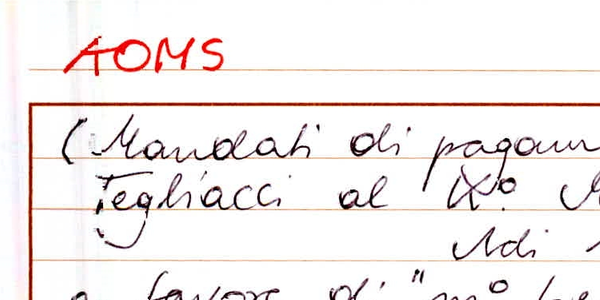 AOMS
(Mandati di pagam
Tegliacci al IX°
Adi
a favore di "m°